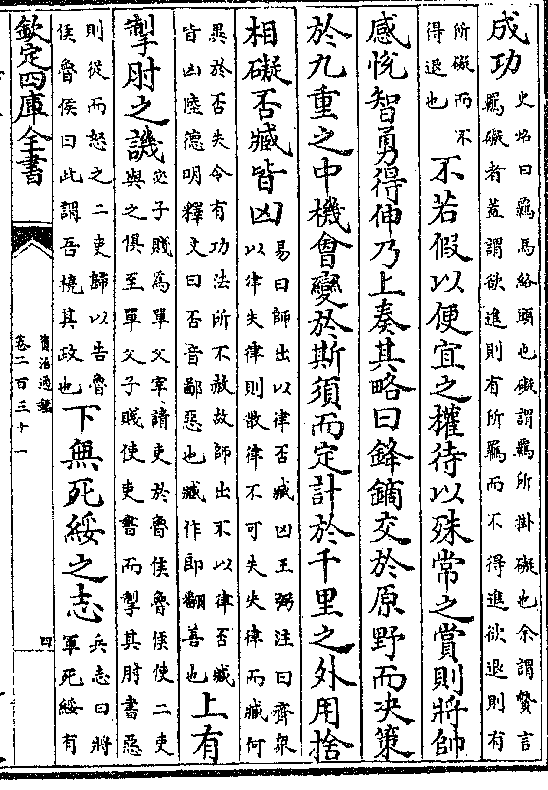 成功史炤曰羈馬絡頭也礙謂羈所掛礙也余謂贄言
羈礙者蓋謂欲進則有所羈而不得進欲退則有
所礙而不
得退也不若假以便宜之權待以殊常之賞則將帥
感悅智勇得伸乃上奏其略曰鋒鏑交於原野而決策
於九重之中機會變於斯須而定計於千里之外用捨
相礙否臧皆凶易曰師出以律否臧凶王弼注曰齊衆
以律失律則散律不可失失律而臧何
異於否失令有功法所不赦故師出不以律否臧
皆凶陸德明釋文曰否音鄙惡也臧作郎翻善也上有
掣肘之譏宓子賤為單父宰請吏於魯侯魯侯使二吏
與之俱至單父子賤使吏書而掣其肘書惡
則從而怒之二吏歸以告魯
侯魯侯曰此謂吾撓其政也下無死綏之志兵志曰將
軍死綏有
欽定四庫全書
資治通鑑
卷二百三十一
四